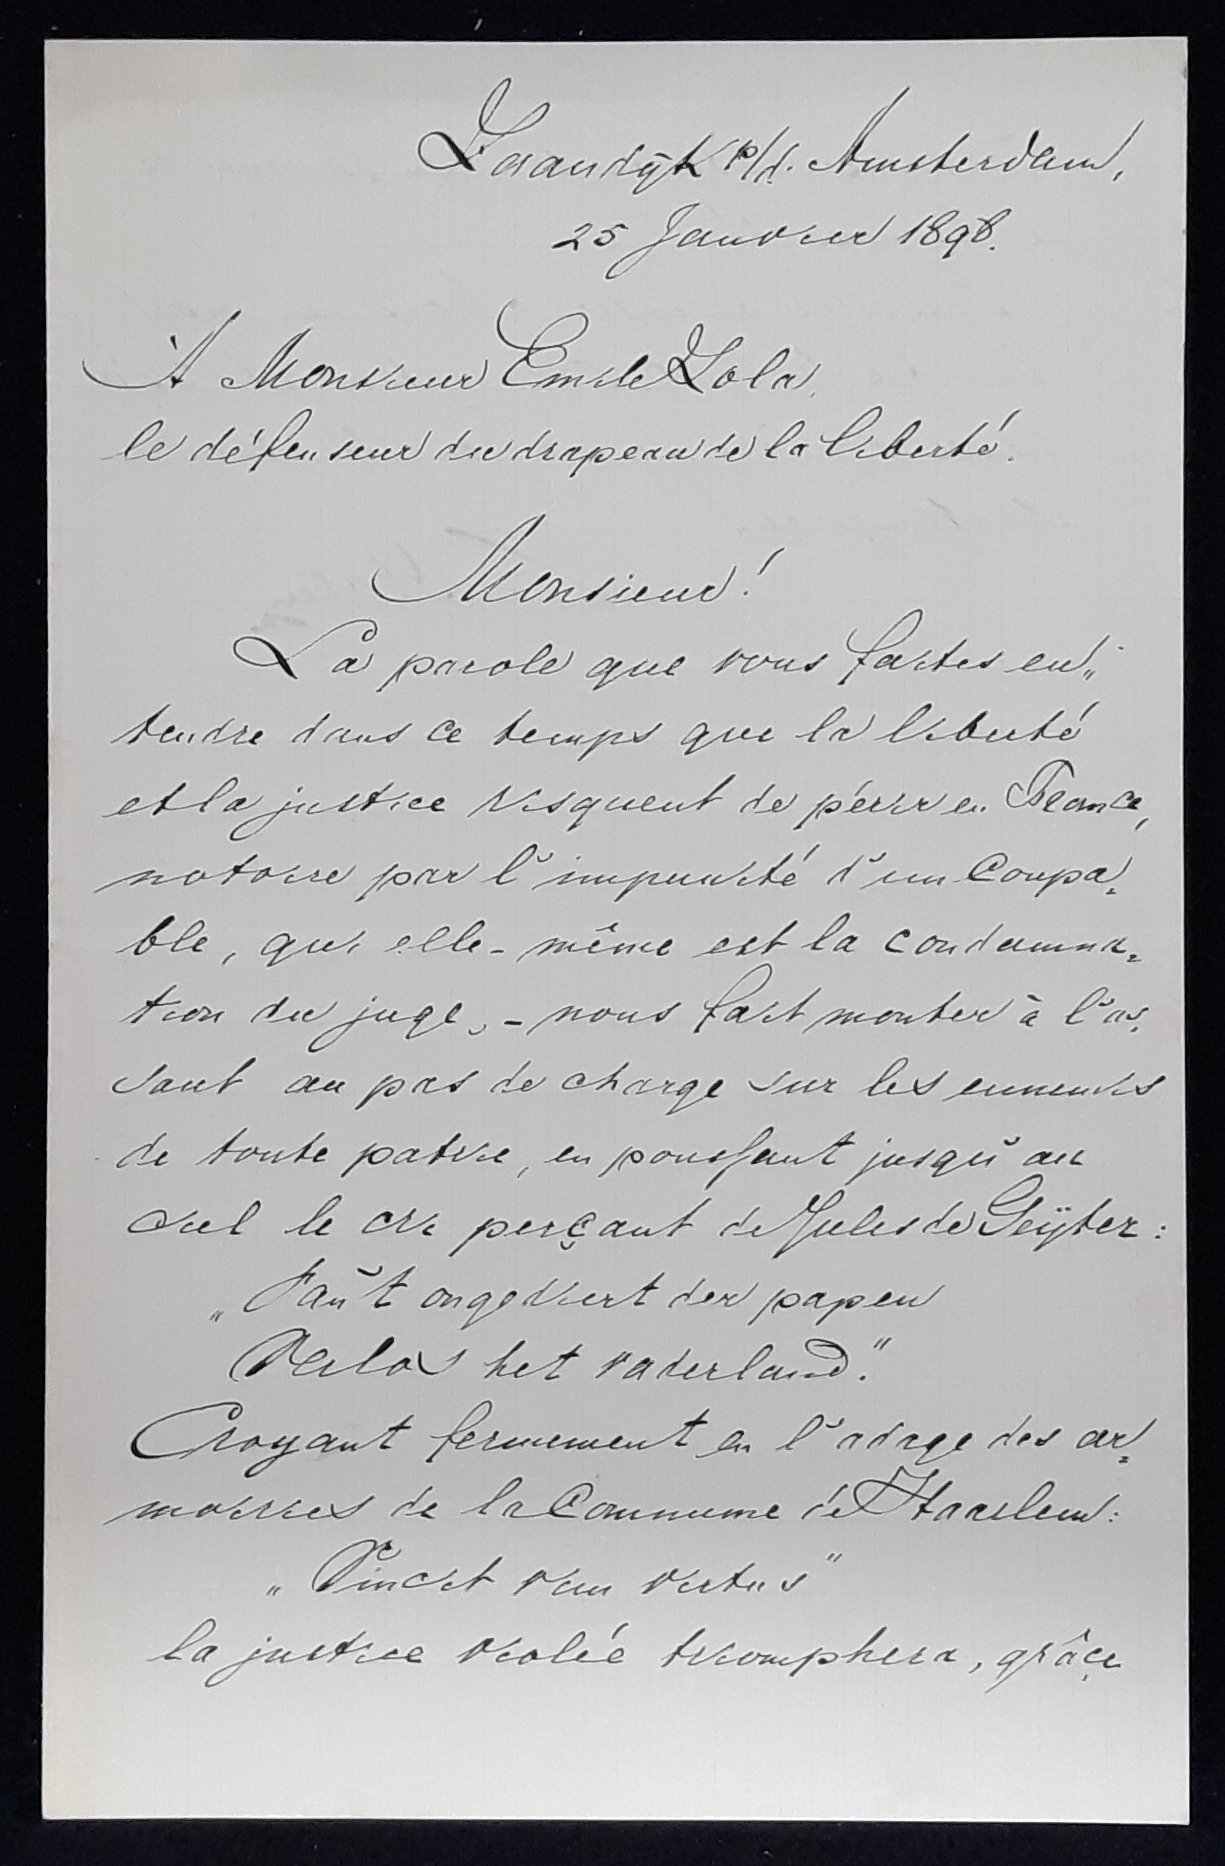 Zaandijk p/d. Amsterdam,
25 Janvier 1898.
À Monsieur Emile Zola,
le défenseur du drapeau de la liberté.
Monsieur!
La parole que vous faites en„
tendre dans ce temps que la liberté
et la justice risquent de périr en France,
notoire par l'impunité d'un coupa=
ble, qui elle-même est la condamna=
tion du juge, - nous fait monter à l'as=
saut au pas de charge sur les ennemis
de toute patrie, en poussant jusqu'au
ciel le cri perçant de Jules de Geÿter:
„ ongediert der papen
Verlos het vaderland."
Croyant fermement en l'adage des ar=
moiries de la Commune de Haarlem:
„Vincit vim virtus"
la justice violée triomphera, grâce